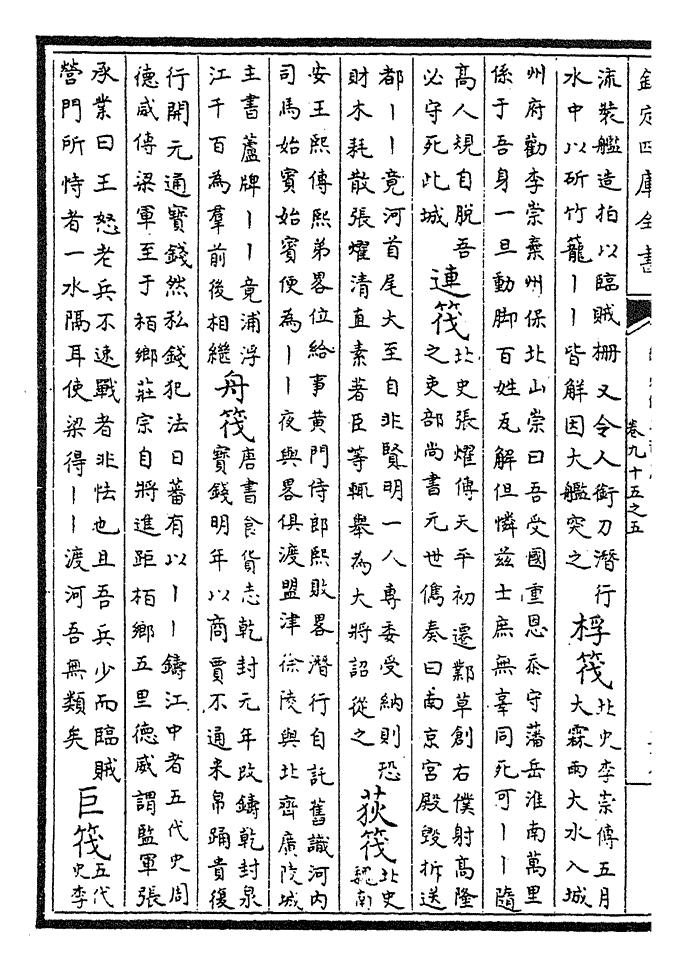 欽定四庫全書
卷九十五之五
流裝艦造拍以臨賊柵又令人銜刀潛行
水中以斫竹籠丨丨皆解因大艦突之
桴筏
北史李崇傳五月
大霖雨大水入城
州府勸李崇棄州保北山崇曰吾受國重恩忝守藩岳淮南萬里
係于吾身一旦動脚百姓瓦解但憐兹士庶無辜同死可丨丨隨
高人規自脫吾
必守死此城
連筏
北史張燿傳天平初遷鄴草創右僕射高隆
之吏部尚書元世儁奏曰南京宮殿毀拆送
都丨丨竟河首尾大至自非賢明一人專委受納則恐
財木耗散張燿清直素著臣等輒舉為大將詔從之
荻筏
北史
魏南
安王熙傳熙弟畧位給事黃門侍郎熙敗畧潛行自託舊識河内
司馬始賓始賓便為丨丨夜與畧俱渡盟津徐陵與北齊廣陵城
主書蘆牌丨丨竟浦浮
江千百為羣前後相繼
舟筏
唐書食貨志乾封元年改鑄乾封泉
寶錢明年以商賈不通米帛踊貴復
行開元通寶錢然私錢犯法日蕃有以丨丨鑄江中者五代史周
德威傳梁軍至于栢鄉莊宗自將進距栢鄉五里德威謂監軍張
承業曰王怒老兵不速戰者非怯也且吾兵少而臨賊
營門所恃者一水隔耳使梁得丨丨渡河吾無類矣
巨筏
五代
史李